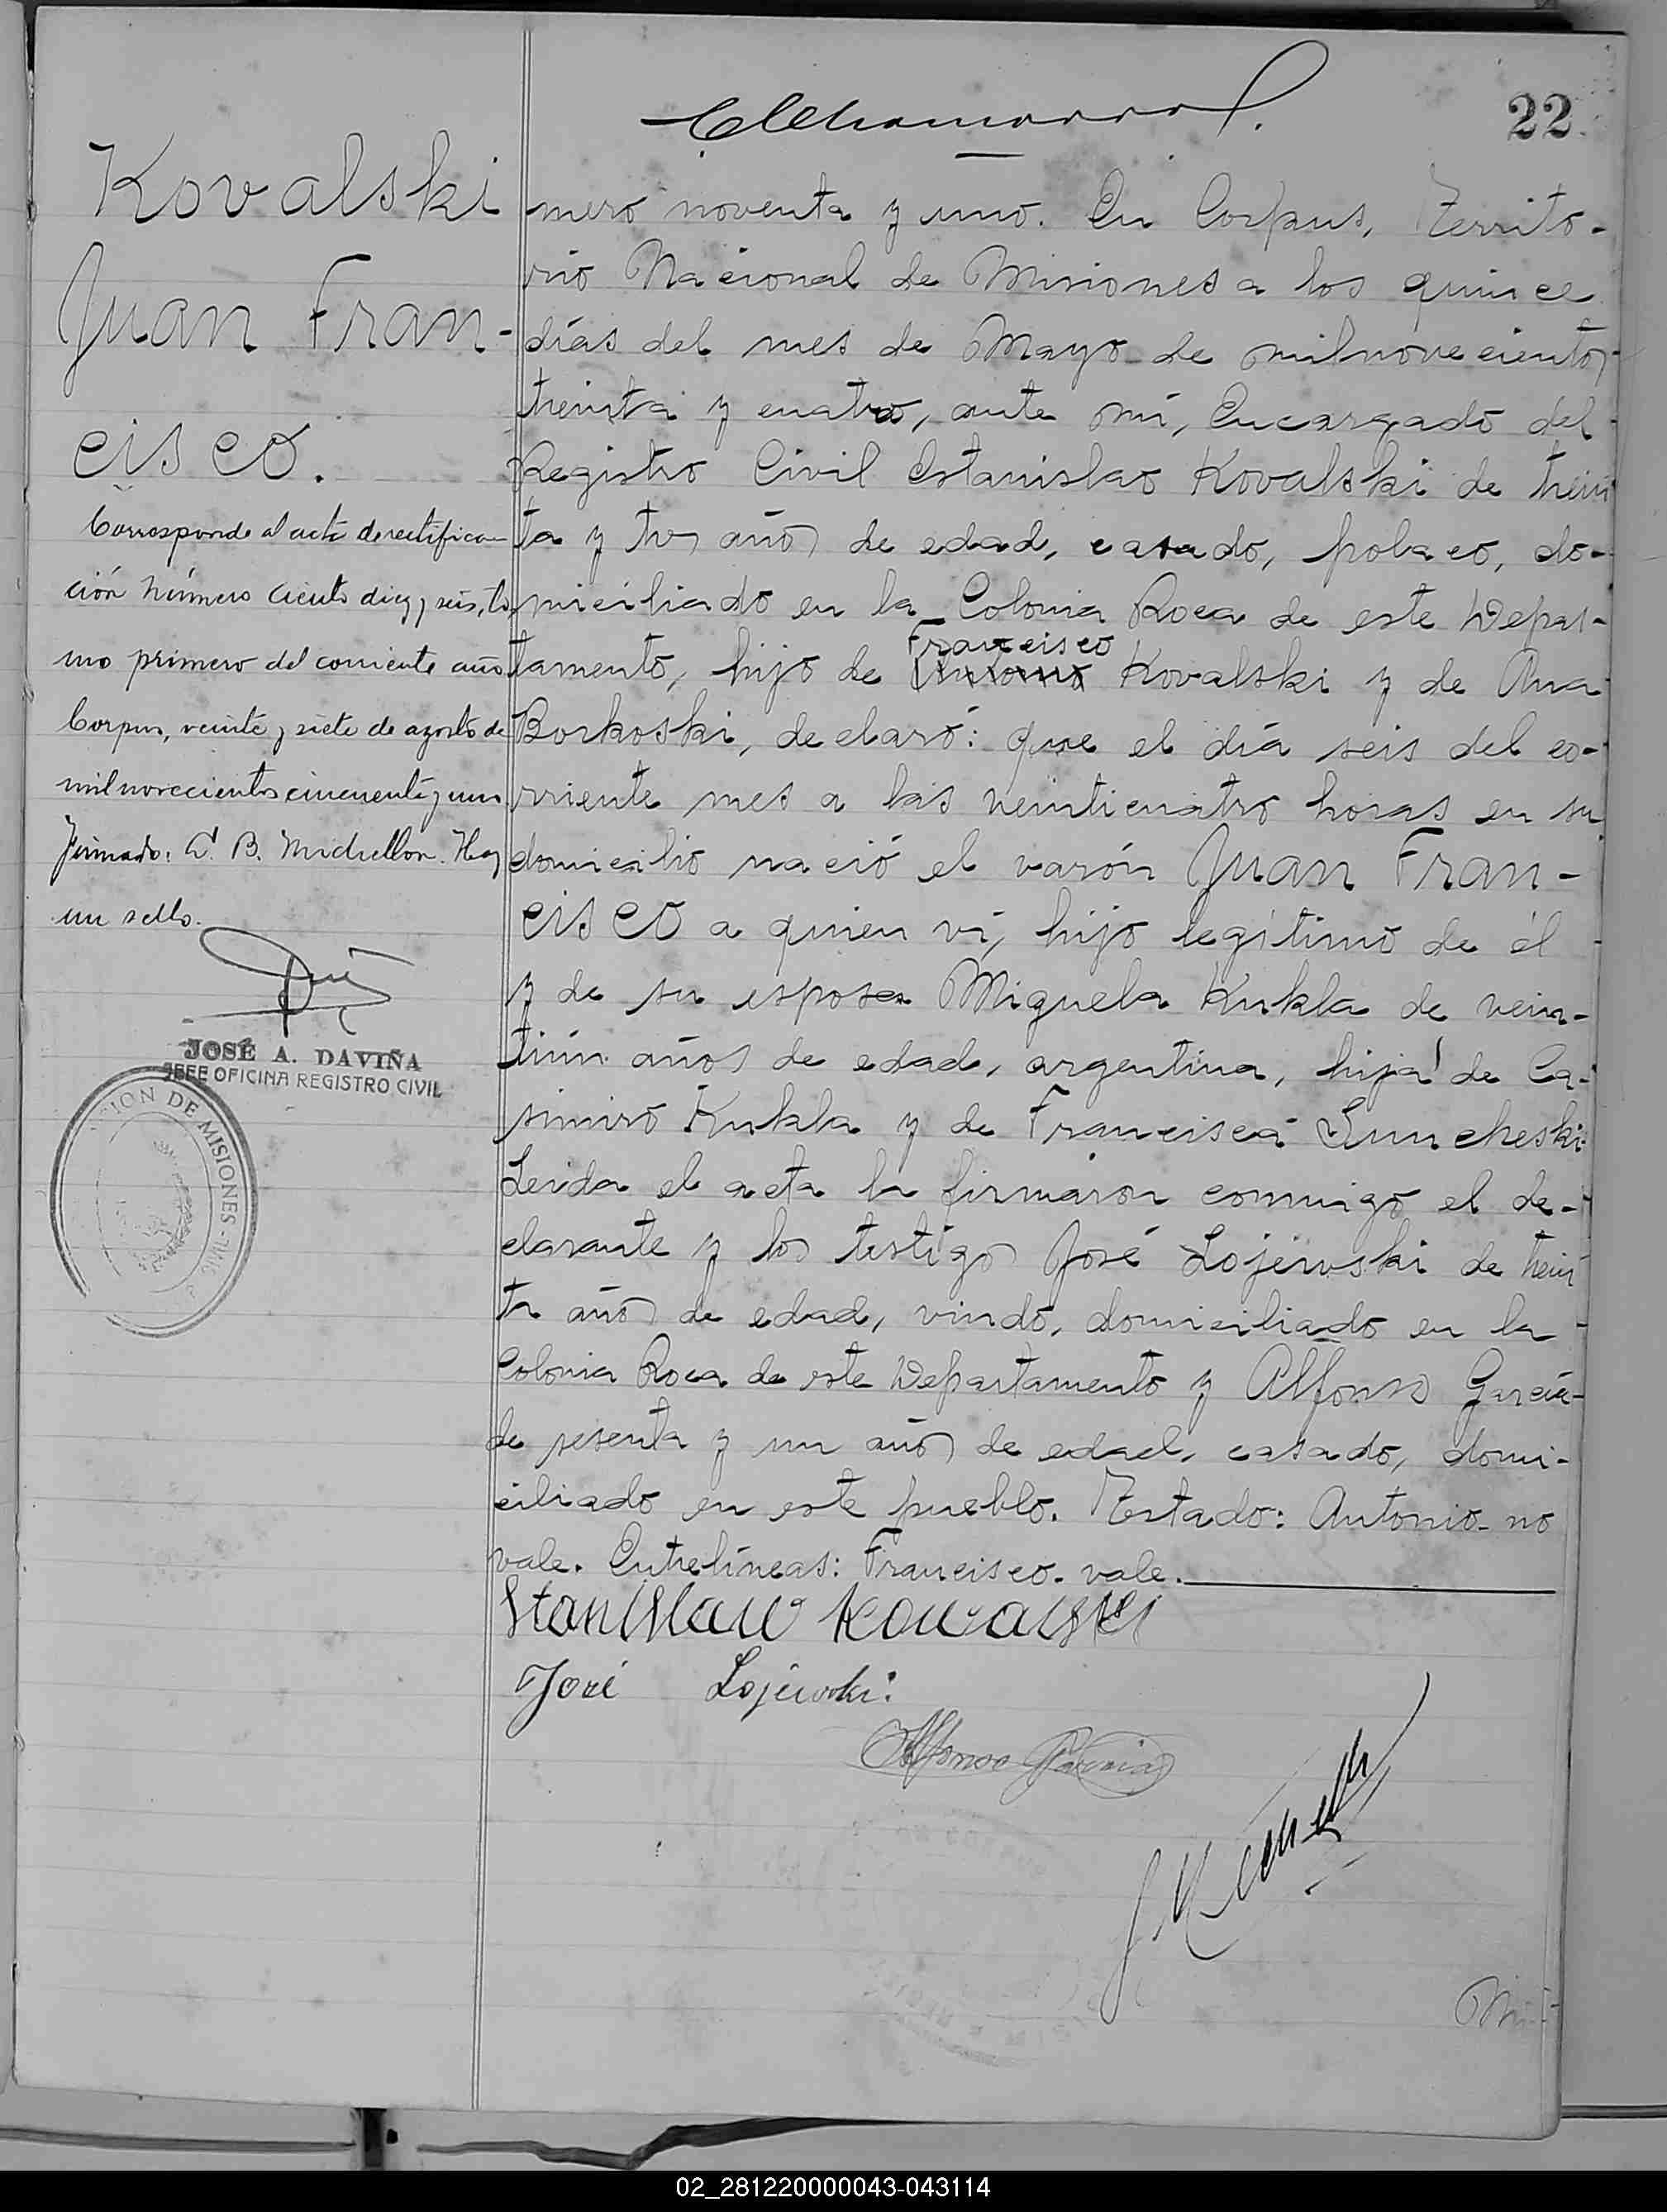 22
Kovalski
Juan Fran-
cisco.
Corresponde al acta de rectifica-
ción número ciento diez y seis, to
mo primero del corriente año
Corpus, veinte y siete de agosto de
mil novecientos cincuenta y uno
Firmado: C. B. Michellon. Hay
un sello.
JOSÉ A. DAVIÑA
JEFE OFICINA REGISTRO CIVIL
DE MISIONES
mero noventa y uno. En Corpus, Territo-
rio Nacional de Misiones a los quince
días del mes de Mayo de mil novecientos
treinta y cuatro, ante mí, Encargado del
Registro Civil Estanislao Kovalski de trein
ta y tres años de edad, casado, polaco, do-
miciliado en la Colonia Roca de este Depar-
Francisco
tamento, hijo de Antonio Kovalski y de Ana
Borkoski, declaró: que el día seis del co-
rriente mes a las veinticuatro horas en su
domicilio nació el varón Juan Fran-
cisco a quien ví, hijo legítimo de él
y de su esposa Miguela Kukla de vein-
tiún años de edad, argentina, hija de Ca-
simiro Kukla y de Francisca Suncheski
Leida el acta la firmaron conmigo el de-
clarante y los testigos José Lojewski de trein
ta años de edad, viudo, domiciliado en la
Colonia Roca de este Departamento y Alfonso García
de sesenta y un años de edad, casado, domi-
ciliado en este pueblo. Testado: Antonio no
vale. Entrelíneas: Francisco. vale.
Stanislaw Kowalski
José Lojewski
Alfonso Garcia
02_281220000043-043114